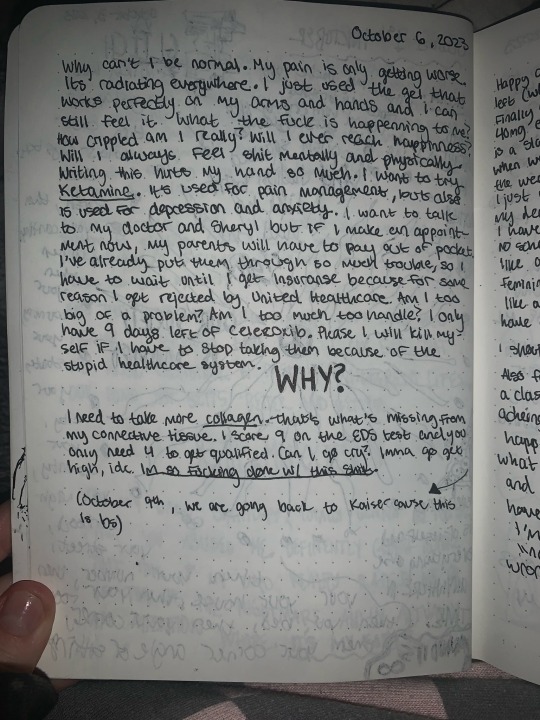 October 6, 2023
Why can't I be normal. My pain is only getting worse.
Its radiating everywhere. I just used the gel that
works perfectly on my arms and hands and I can
still feel it. What the fuck is happenning to me?
How crippled am I really? Will I ever reach happinness?
Will I always feel shit mentally and physically.
Writing this hurts my hand so much. I want to try
Ketamine. Its used for pain management, but also
is used for depression and anxiety. I want to talk
to my doctor and Sheryl but if I make an appoint-
ment now, my parents will have to pay out of pocket.
I've already put them through so much trouble, so I
have to wait until I get insuranse because for some
reason I get rejected by United Healthcare. Am I too
big of a problem? Am I too much too handle? I only
have 9 days left of Celecoxib. Please I will kill my-
self if I have to stop taking them because of the
stupid healthcare system.
WHY?
I need to take more collagen. that's what's missing from
my connective tissue. I score 9 on the EDS test and you
only need 4 to get qualified. Can I go cry? Imma go get
high, idc. Im so fucking done w/ this shit.
(October 9th, we are going back to Kaiser cause this
is bs)
Happy
left
Finally
is a
when
the
I just
my
I have
no
like a
feminin
like a
have
I
Also
a class
happ
what
and
have
I'm
wron